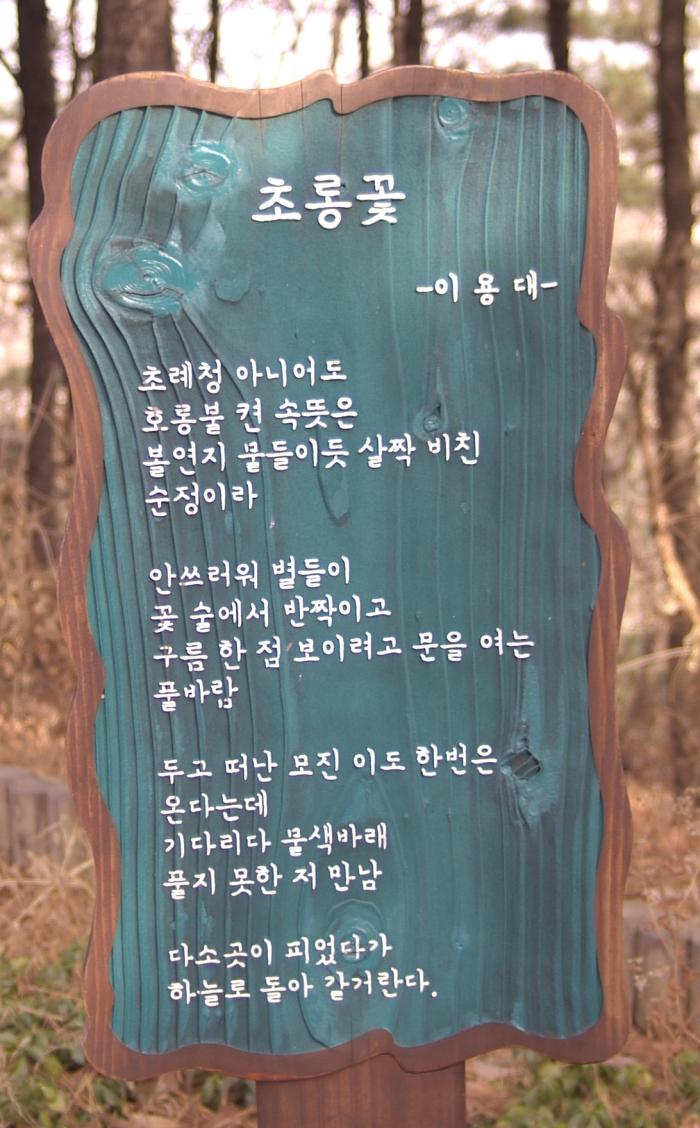 초롱꽃
-이 용 대-
초례청 아니어도
호롱불 켠 속뜻은
볼연지 물들이듯 살짝 비친
순정이라
안쓰러워 별들이
꽃 술에서 반짝이고
구름 한 점 보이려고 문을 여는
풀바람
두고 떠난 모진 이도 한번은
온다는데
기다리다 물색바래
풀지 못한 저 만남
다소곳이 피었다가
하늘로 돌아 갈거란다.